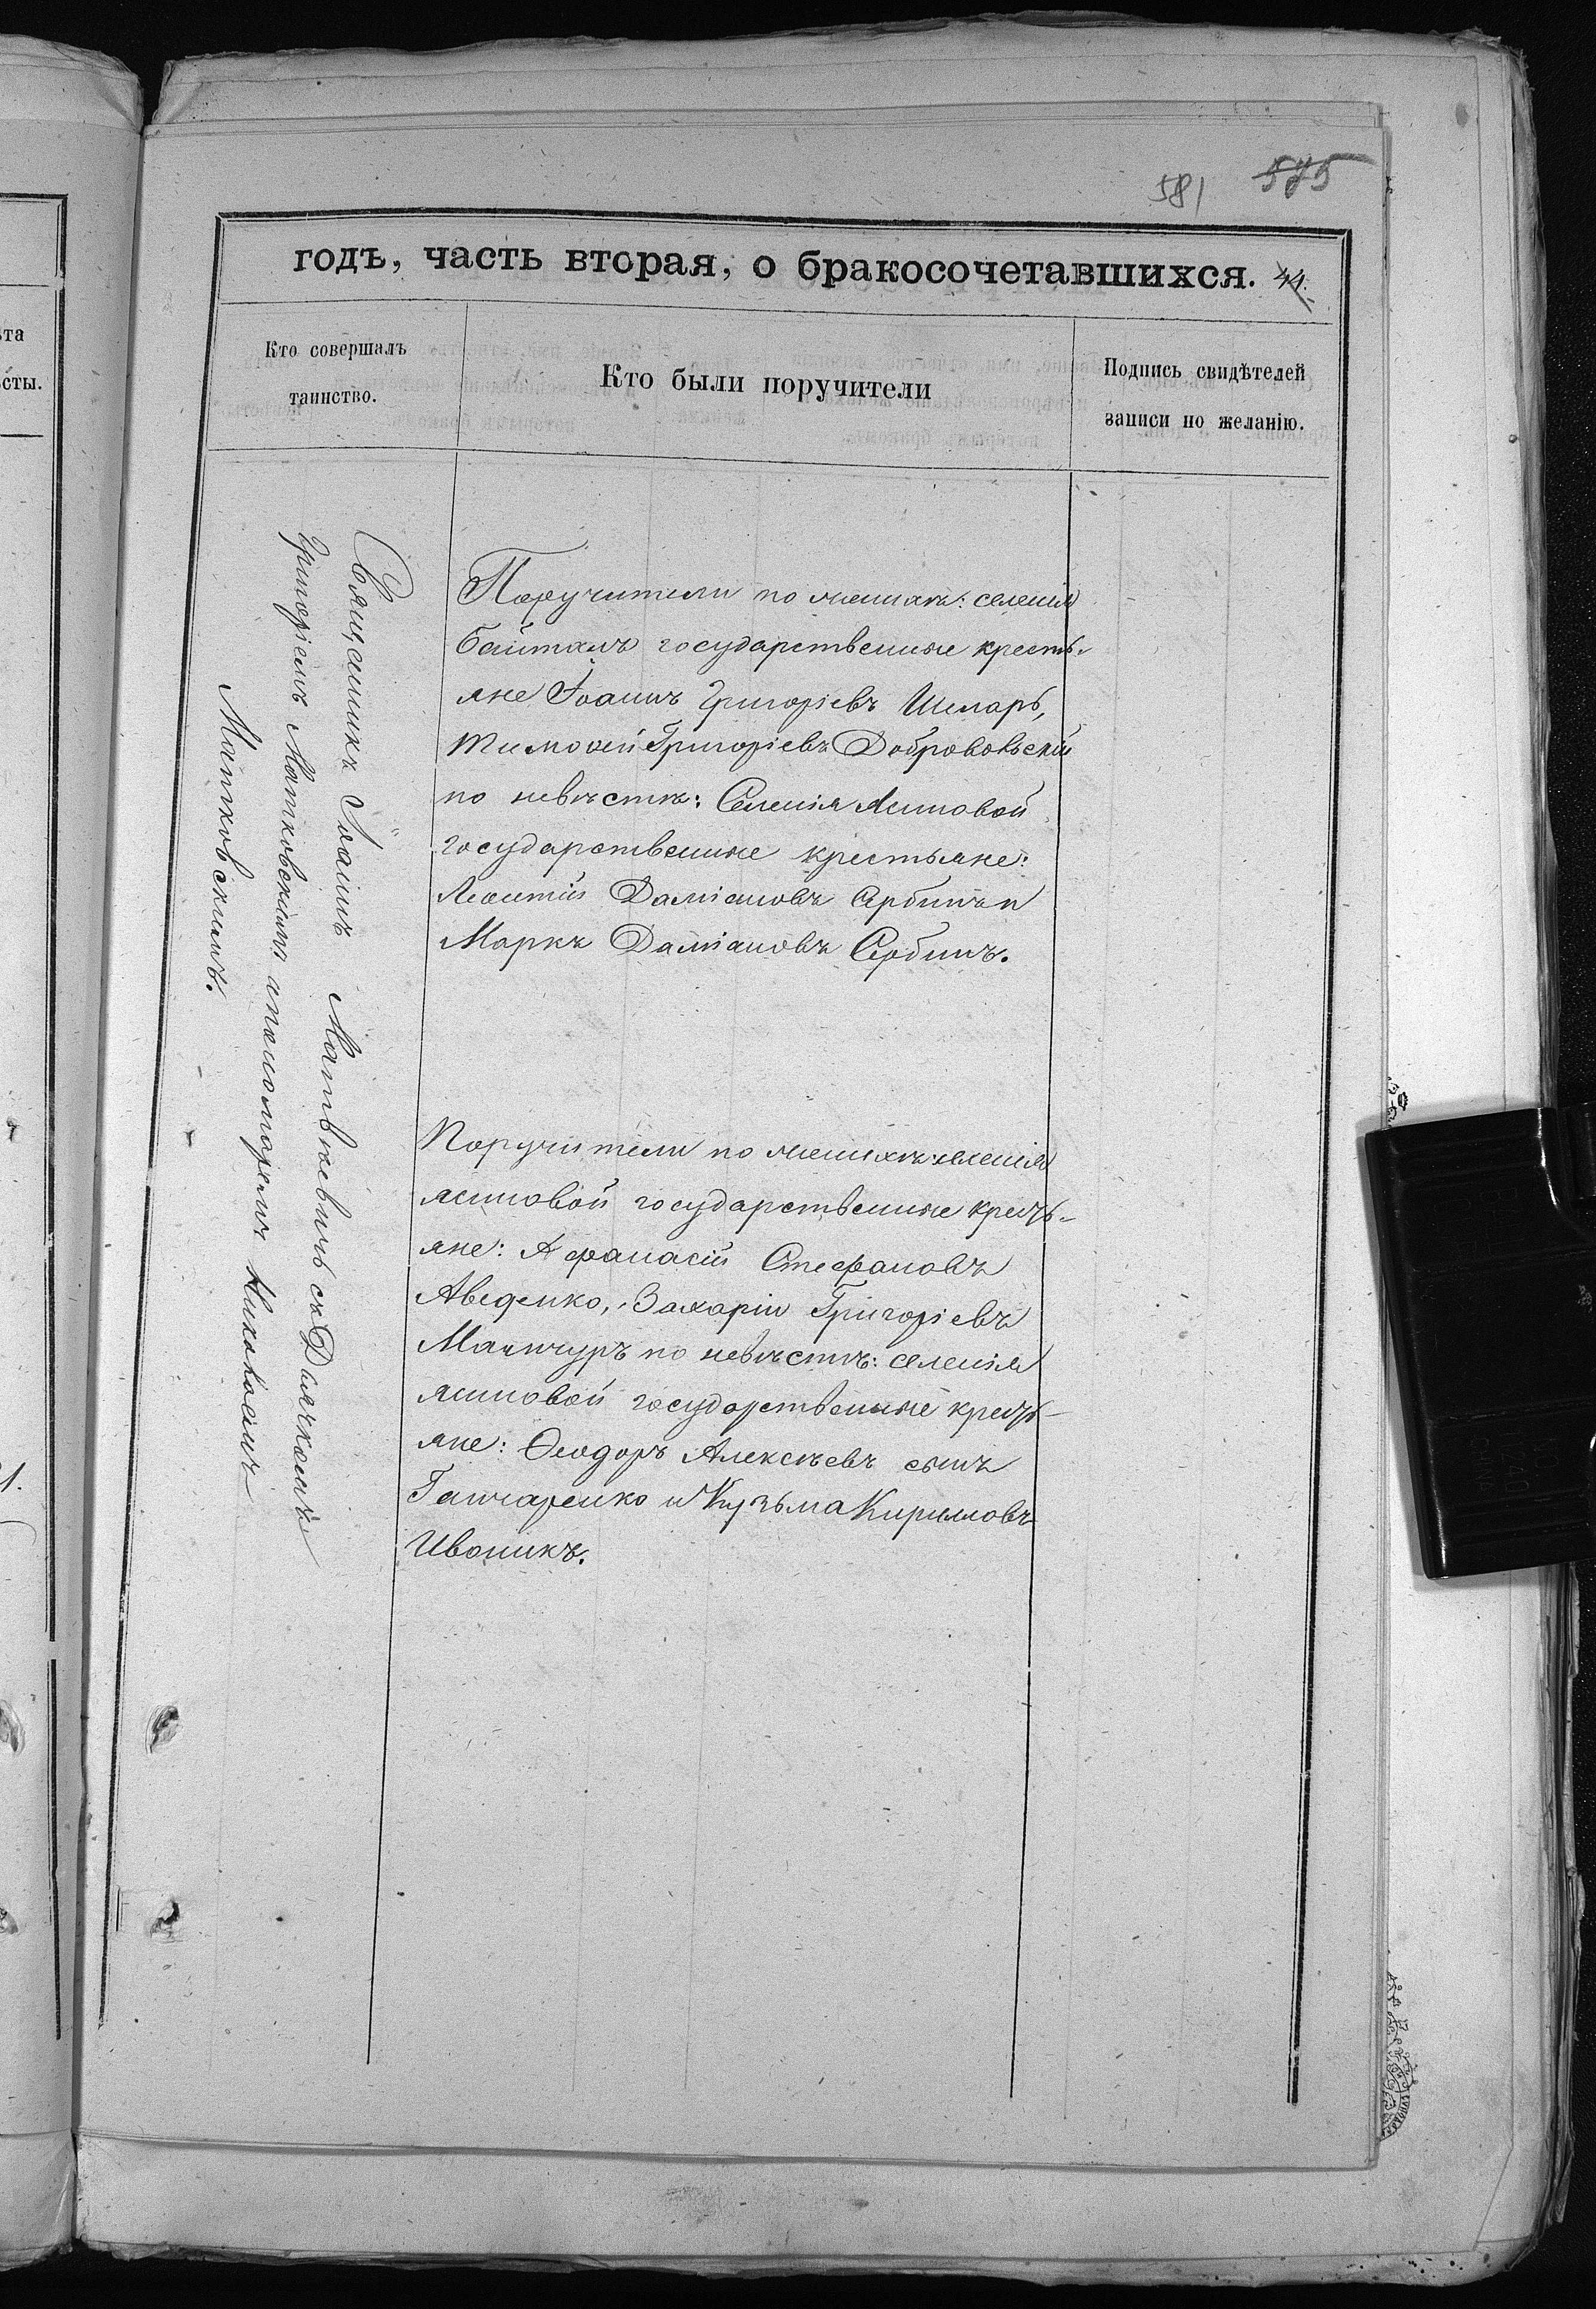 581 575
годъ, часть вторая, о бракосочетавшихся. 44.
Кто совершалъ
таинство.
Кто были поручители
Подпись свидѣтелей
записи по желанію.
ѣта
ѣсты.
Священникъ Іоаннъ Матвѣевичъ съ Дьячкомъ
Григоріемъ Матковскимъ и пономаремъ Николаемъ
Матковскимъ.
Поручители по женихѣ: селенія
Байталъ государственные кресть-
яне Іоаннъ Григоріевъ Шкларь,
Тимоѳей Григоріевъ Добровольскій
по невѣстѣ: Селенія Ясиновой
государственные крестьяне:
Леонтій Даміановъ Сербинъ и
Маркъ Даміановъ Сербинъ.
Поручители по женихѣ селенія
Ясиновой государственные кресть-
яне: Афанасій Стефановъ
Авдеенко, Захарій Григоріевъ
Манчуръ по невѣстѣ: селенія
Ясиновой государственные кресть-
яне: Ѳеодоръ Алексѣевъ сынъ
Ганчаренко и Кузьма Кириловъ
Ивоникъ.